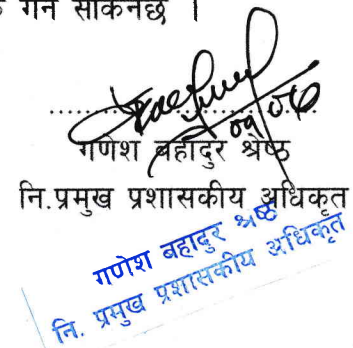 गर्न सकिनेछ ।
०१/०६
गणेश बहादुर श्रेष्ठ
नि.प्रमुख प्रशासकीय अधिकृत
गणेश बहादुर श्रेष्ठ
नि. प्रमुख प्रशासकीय अधिकृत